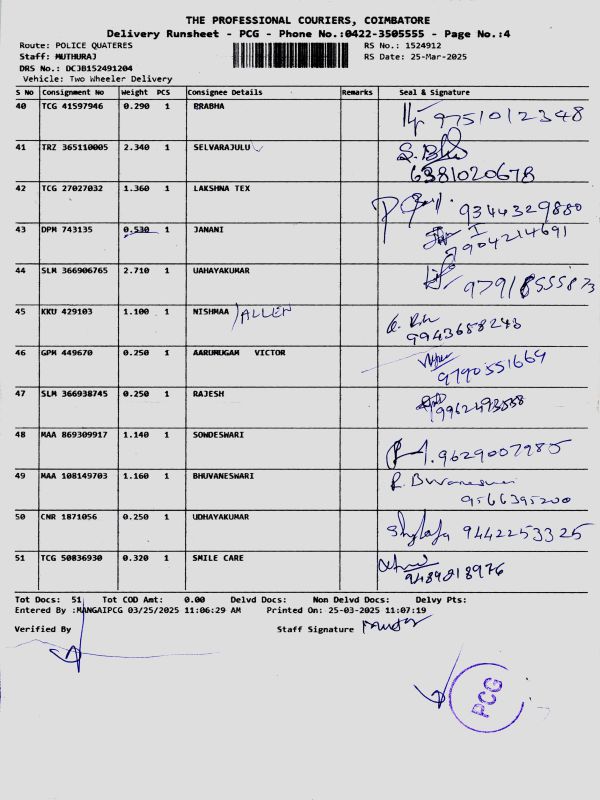 THE PROFESSIONAL COURIERS, COIMBATORE
Delivery Runsheet - PCG - Phone No.:0422-3505555 - Page No.:4
Route: POLICE QUATERES RS No.: 1524912
Staff: MUTHURAJ RS Date: 25-Mar-2025
DRS No.: DCJB152491204
Vehicle: Two Wheeler Delivery
S No Consignment No Weight PCS Consignee Details Remarks Seal & Signature
40 TCG 41597946 0.290 1 PRABHA 9751012348
41 TRZ 365110005 2.340 1 SELVARAJULU
6381020678
42 TCG 27027032 1.360 1 LAKSHNA TEX 9344329880
43 DPM 743135 0.530 1 JANANI
97904214691
44 SLM 366906765 2.710 1 UAHAYAKUMAR
45 KKU 429103 1.100 1 NISHMAA /ALLEN
9943658243
46 GPM 449670 0.250 1 AARUMUGAM VICTOR
9790551669
47 SLM 366938745 0.250 1 RAJESH
48 MAA 869309917 1.140 1 SONDESWARI 9629007985
49 MAA 108149703 1.160 1 BHUVANESWARI
9566395200
50 CNR 1871056 0.250 1 UDHAYAKUMAR 9442253325
51 TCG 50836930 0.320 1 SMILE CARE
Tot Docs: 51 Tot COD Amt: 0.00 Delvd Docs: Non Delvd Docs: Delvy Pts:
Entered By :MANGAIPCG 03/25/2025 11:06:29 AM Printed On: 25-03-2025 11:07:19
Verified By Staff Signature
PCG